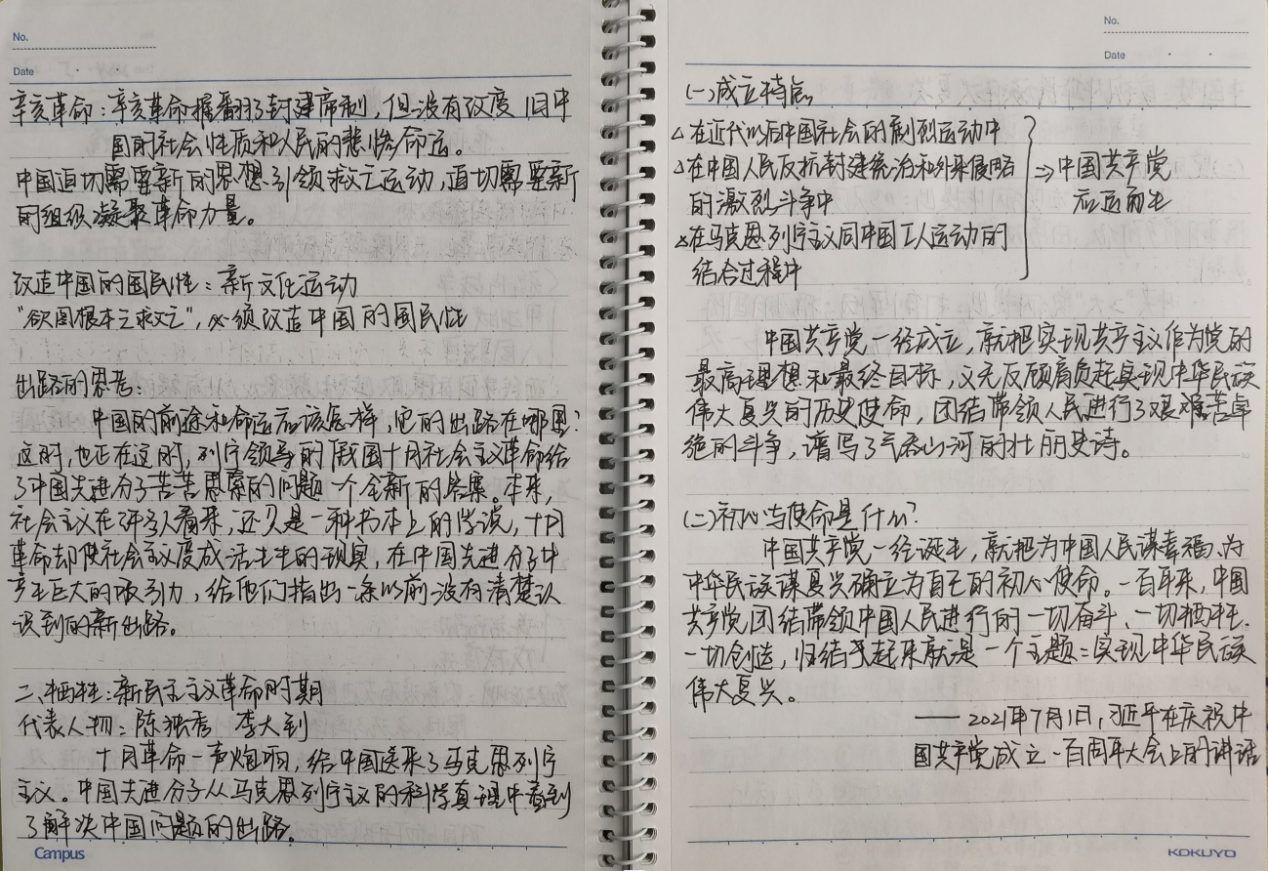 No.
Date
辛亥革命：辛亥革命推翻了封建帝制，但没有改变旧中
国的社会性质和人民的悲惨命运。
中国迫切需要新的思想引领救亡运动，迫切需要新
的组织凝聚革命力量。
改造中国的国民性：新文化运动
"欲图根本之救亡"，必须改造中国的国民性
出路的思考：
中国的前途和命运应该怎样，它的出路在哪里？
这时，也正在这时，列宁领导的俄国十月社会主义革命给
了中国先进分子苦苦思索的问题一个全新的答案。本来，
社会主义在许多人看来，还只是一种书本上的学说，十月
革命却使社会主义变成活生生的现实，在中国先进分子中
产生巨大的吸引力，给他们指出一条以前没有清楚认
识到的新出路。
二、牺牲：新民主主义革命时期
代表人物：陈独秀 李大钊
十月革命一声炮响，给中国送来了马克思列宁
主义。中国先进分子从马克思列宁主义的科学真理中看到
了解决中国问题的出路。
Campus
No.
Date
(一)成立特点
△在近代以后中国社会的剧烈运动中
△在中国人民反抗封建统治和外来侵略
的激烈斗争中
△在马克思列宁主义同中国工人运动的
结合过程中
⇒中国共产党
应运而生
中国共产党一经成立，就把实现共产主义作为党的
最高理想和最终目标，义无反顾肩负起实现中华民族
伟大复兴的历史使命，团结带领人民进行了艰难苦卓
绝的斗争，谱写了气吞山河的壮丽史诗。
(二)初心与使命是什么？
中国共产党一经诞生，就把为中国人民谋幸福、为
中华民族谋复兴确立为自己的初心使命。一百年来，中国
共产党团结带领中国人民进行的一切奋斗、一切牺牲、
一切创造，归结起来就是一个主题：实现中华民族
伟大复兴。
——2021年7月1日，习近平在庆祝中
国共产党成立一百周年大会上的讲话
KOKUYO